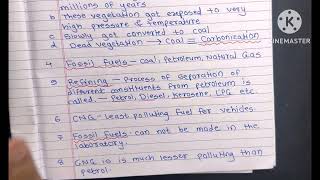 millions of years
b These vegetation got exposed to very
high pressure & temperature
c Slowly got converted to coal
d Dead vegetation → Coal = Carbonization
4 Fossil fuels - Coal, Petroleum, Natural Gas
5 Refining - Process of separation of
different constituents from petroleum is
called. Petrol, Diesel, Kerosene, LPG etc.
6 CNG - Least polluting fuel for vehicles.
7 Fossil fuels can not be made in the
laboratory.
8 CNG is is much lesser polluting than
petrol
KINEMASTER